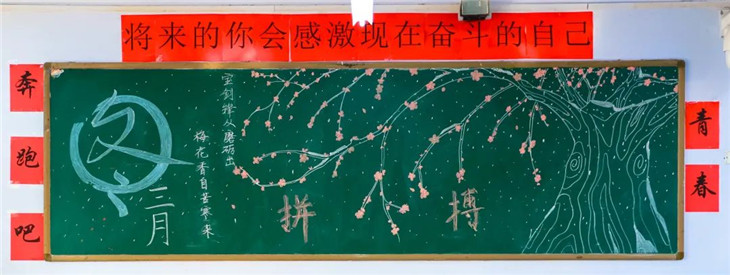 将来的你会感激现在奋斗的自己
奔跑吧
三月
宝剑锋从磨砺出
梅花香自苦寒来
拼搏
青春